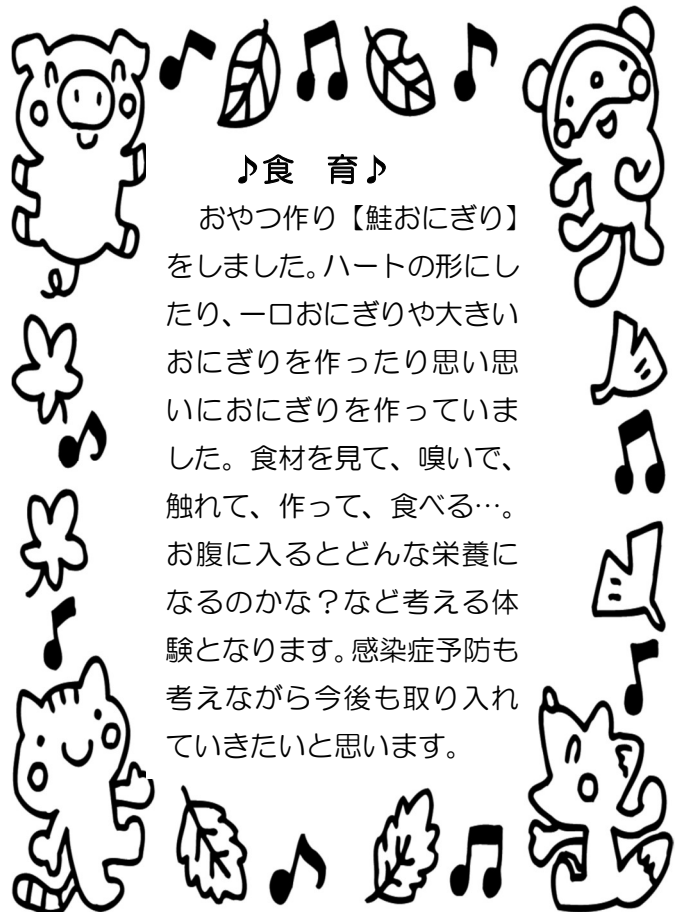 ♪食　育♪
　おやつ作り【鮭おにぎり】
をしました。ハートの形にし
たり、一口おにぎりや大きい
おにぎりを作ったり思い思
いにおにぎりを作っていま
した。食材を見て、嗅いで、
触れて、作って、食べる…。
お腹に入るとどんな栄養に
なるのかな？など考える体
験となります。感染症予防も
考えながら今後も取り入れ
ていきたいと思います。